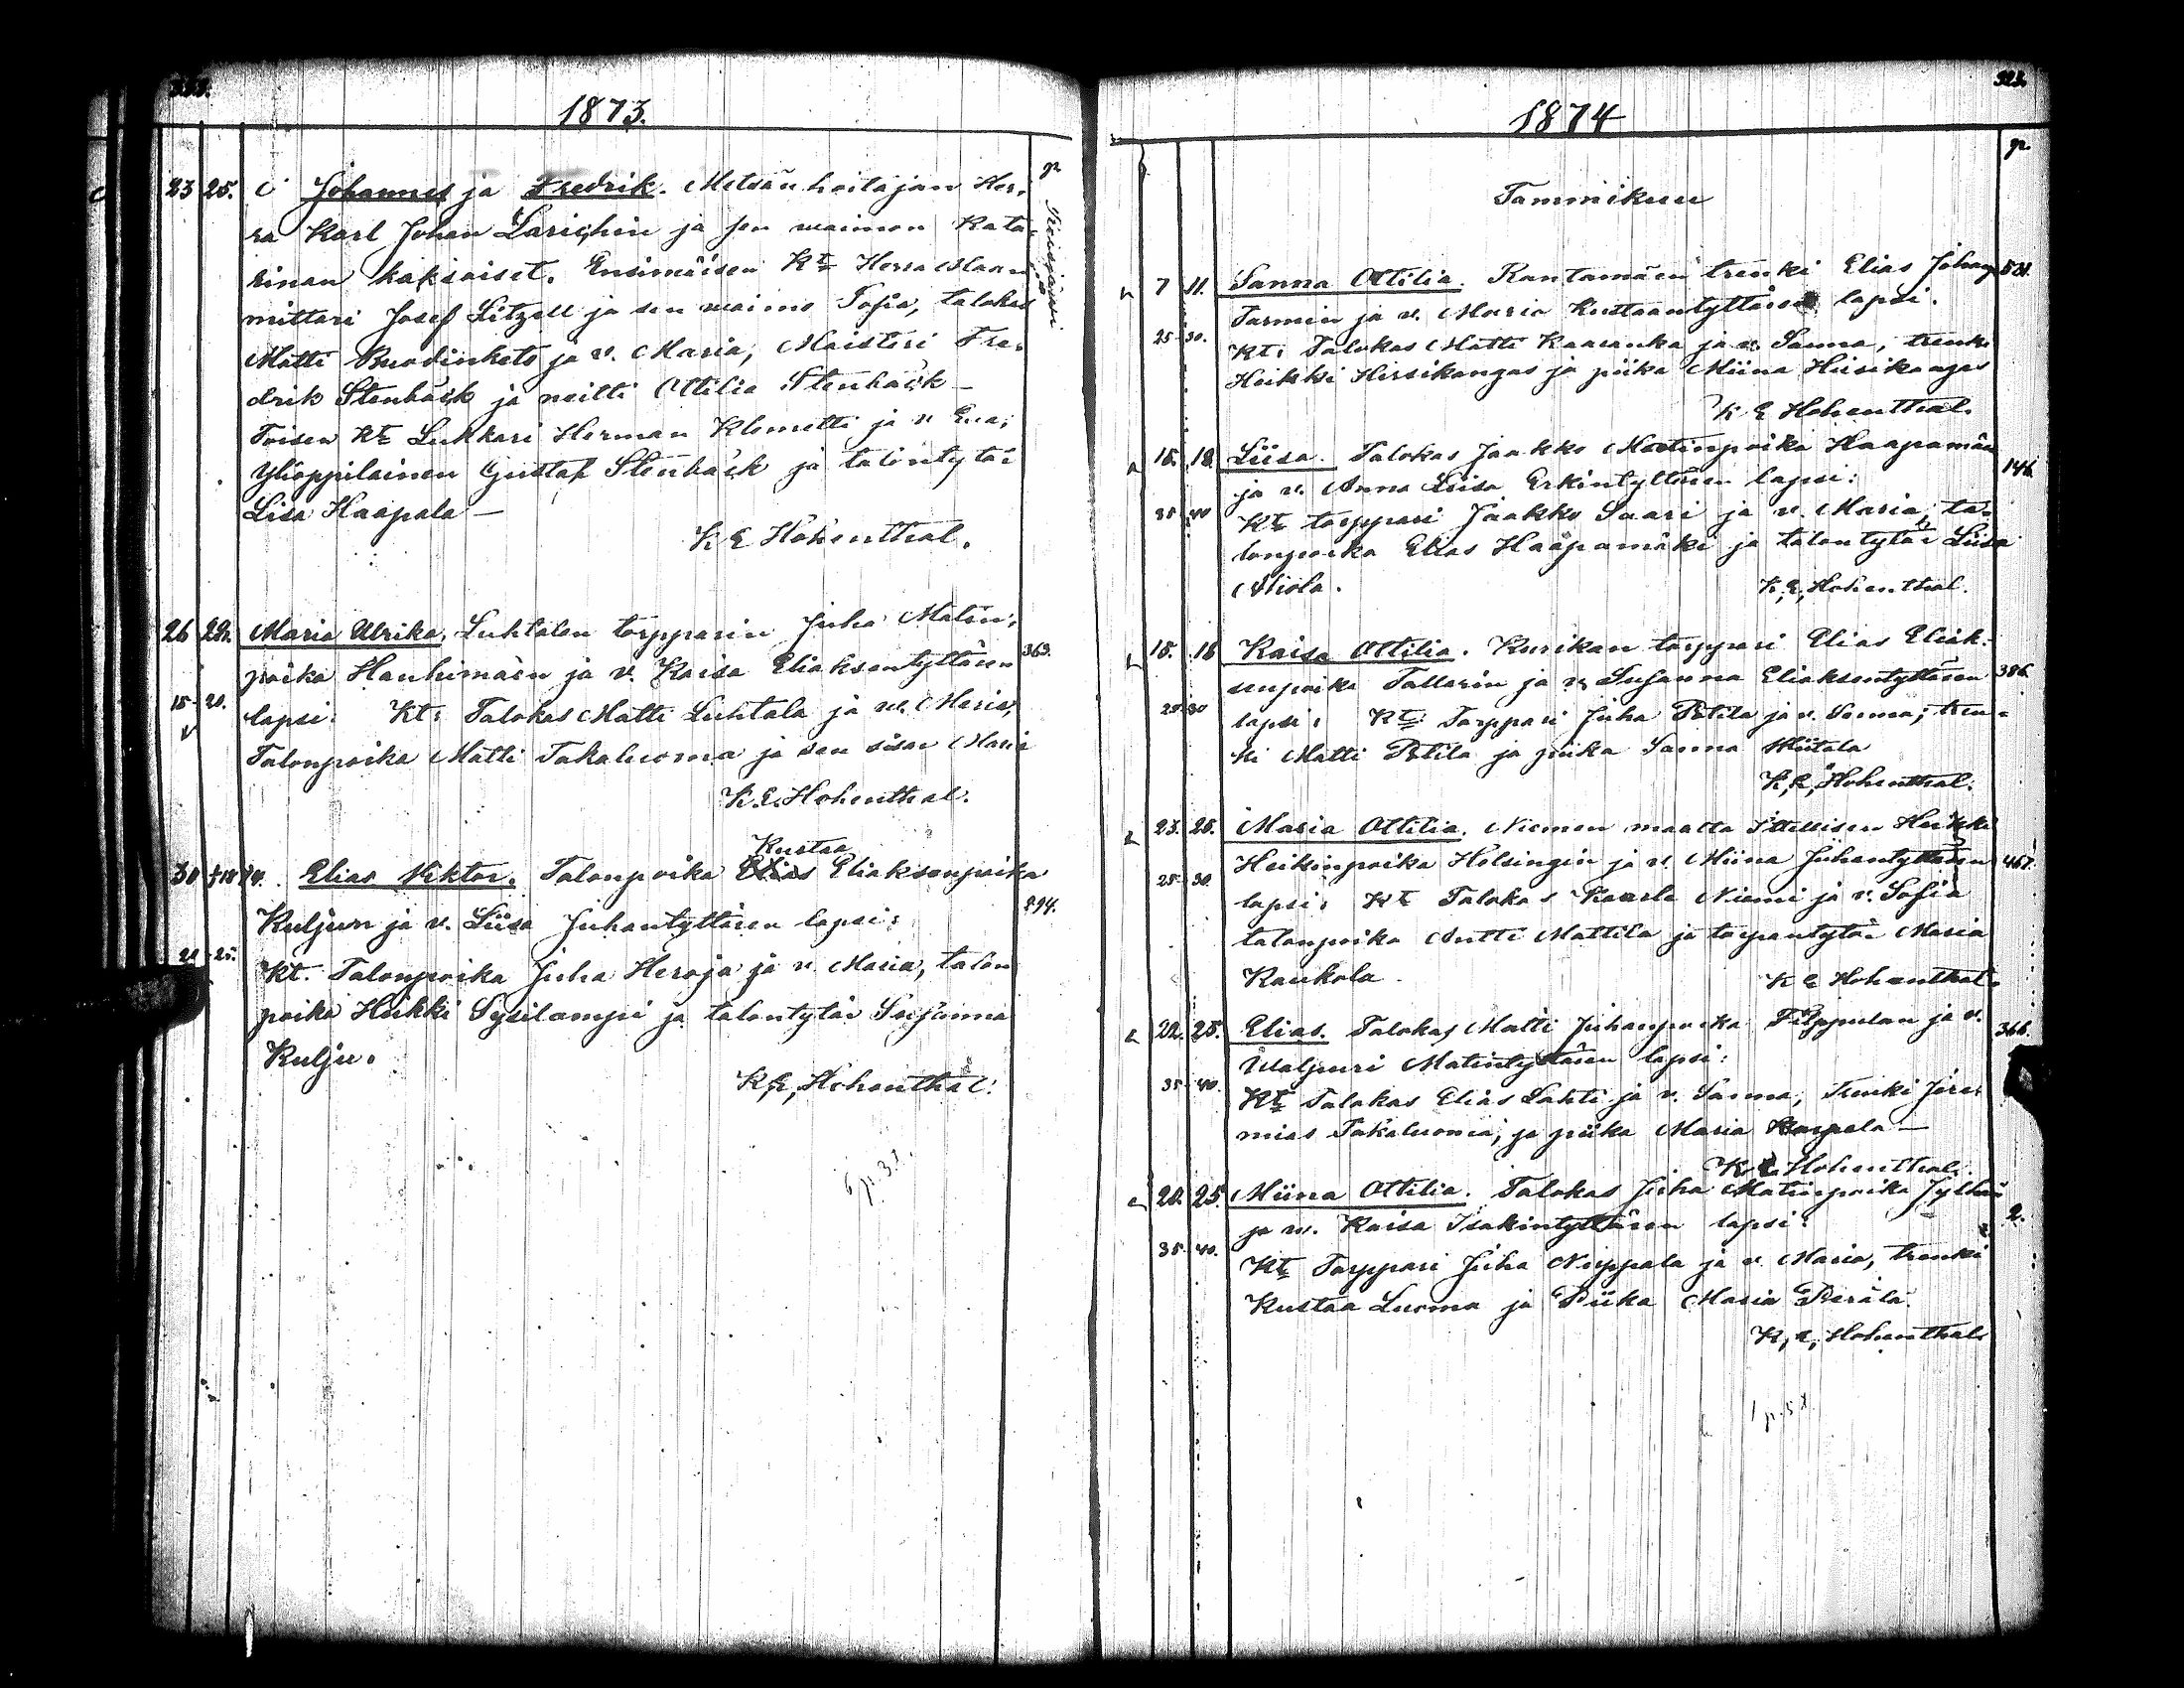 1873.
p.
23 25. Johannes ja Fredrik. Metsän hoitajan Her-
ra Karl Johan ja sen waimon Kata-
rinan kaksoiset. Ensimäisen Kt: Herra Maan
mittari Josef Litzell ja sen waimo Sofia, talokas
Matti ja w. Maria, Maisteri Fre-
drik Stenbäck ja neitti Ottilia Stenbäck –
Toisen Kt: Lukkari Herman Klemetti ja w Eva;
Ylioppilainen Gustaf Stenbäck ja talontytär
Lisa Haapala –
K E Hohenthal.
26 29. Maria Ulrika, Luhtalan torpparin Juha Matin-
poika Hauhimäen ja v. Kaisa Eliaksentyttären 363.
15-20. lapsi: Kt: Talokas Matti Luhtala ja w. Maria,
Talonpoika Matti Takaluoma ja sen sisar Maria
K. E. Hohenthal.
Kustaa
30 Elias Viktor. Talonpoika Elias Eliaksenpoika
Kuljun ja v. Liisa Juhantyttären lapsi: 294.
20-25. Kt. Talonpoika Juha Heroja ja v. Maria, talon
poika Heikki Sysilampi ja talontytär Susanna
Kulju.
K, E, Hohenthal.
6 p. 3 t.
1874
p.
Tammikuu
7 11. Sanna Ottilia. Rantamäen trenki Elias Johan 521.
Tarmin ja v. Maria Kustaantyttären lapsi.
25-30. Kt: Talokas Matti Kaaranka ja v. Sanna, trenki
Heikki Hirsikangas ja piika Miina Hirsikangas
K E Hohenthal.
15. 18. Liisa. Talokas Jaakko Matinpoika Haapamäen
ja v. Anna Liisa Erkintyttären lapsi: 146
35-40 Kt: torppari Jaakko Saari ja v. Maria, ta-
lonpoika Elias Haapamäki ja talontytär Liisa
K, E, Hohenthal.
15. 18 Kaisa Ottilia. Kurikan torppari Elias Eliak-
senpoika Tallarin ja v. Susanna Eliaksentyttären 386
25-30 lapsi: Kt: Torppari Juha Potila ja v. Sanna; tren-
ki Matti Potila ja piika Sanna Wiitala
K, E, Hohenthal.
23. 25. Maria Ottilia. Niemen maalta Ittellisen Heikki
Heikinpoika Helsingin ja v. Miina Juhantyttären 467.
25-30. lapsi: Kt: Talokas Kaarle Niemi ja v. Sofia
talonpoika Antti Mattila ja torpantytär Maria
Kaukola.
K E Hohenthal.
22. 25. Elias. Talokas Matti Juhanpoika Filppulan ja v. 366.
Walpuri Matintyttären lapsi:
35-40. Kt: Talokas Elias Lahti ja v. Sanna, Trenki Jere-
mias Takaluoma, ja piika Maria –
K E Hohenthal.
20. 25. Miina Ottilia. Talokas Juha Matinpoika Jylhän
ja w. Kaisa Isakintyttären lapsi: 2.
35-40. Kt: Torppari Juha Nirppala ja v. Maria, trenki
Kustaa Luoma ja Piika Maria Perälä.
K, E, Hohenthal.
1 p. 5 t.